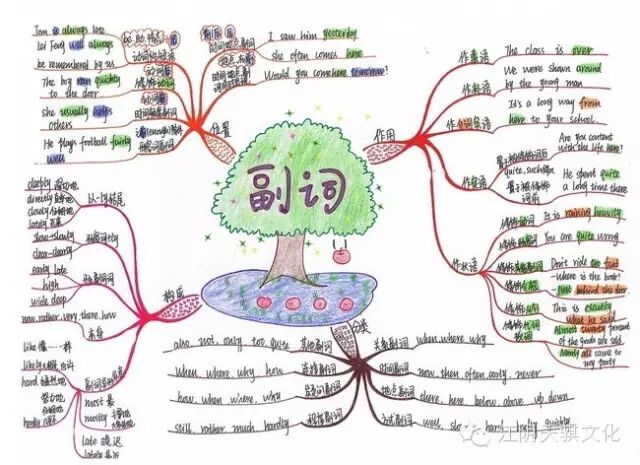 Tom is always late
Lei Feng will always
be remembered by us
The boy ran quickly
to the door
She usually helps
others
He plays football fairly
well
I saw him yesterday
she often comes here
Would you come here tomorrow?
位置
副词
作用
作表语
The class is over
We were shown around
by the young man
作介词宾语
It's a long way from
here to your school
Are you content
with the life here?
quite, such
He spent quite
a long time there
作状语
It is raining heavily
You are quite wrong
Don't ride too fast
Where is the book?
Just behind the door
This is exactly
what he said
修饰代词
数词
Almost twenty percent
of the goods are sold
Nearly all came to
my party
构成
以-ly结尾
directly
closely
lately
slow-slowly
clear-clearly
early late
high
wide deep
now, rather, very, there, how
本身
like 像……一样
hard
most 最
mostly
late 晚,迟
分类
also, not, only, too, quite 其他副词
when, where, why, how 连接副词
how, when, where, why 疑问副词
still, rather, much, hardly 程度副词
关系副词 when, where, why
时间副词 now, then, often, early, never
地点副词 there, here, below, above, up, down
方式副词 well, slow, hard, fast, quickly
江阴天骐文化